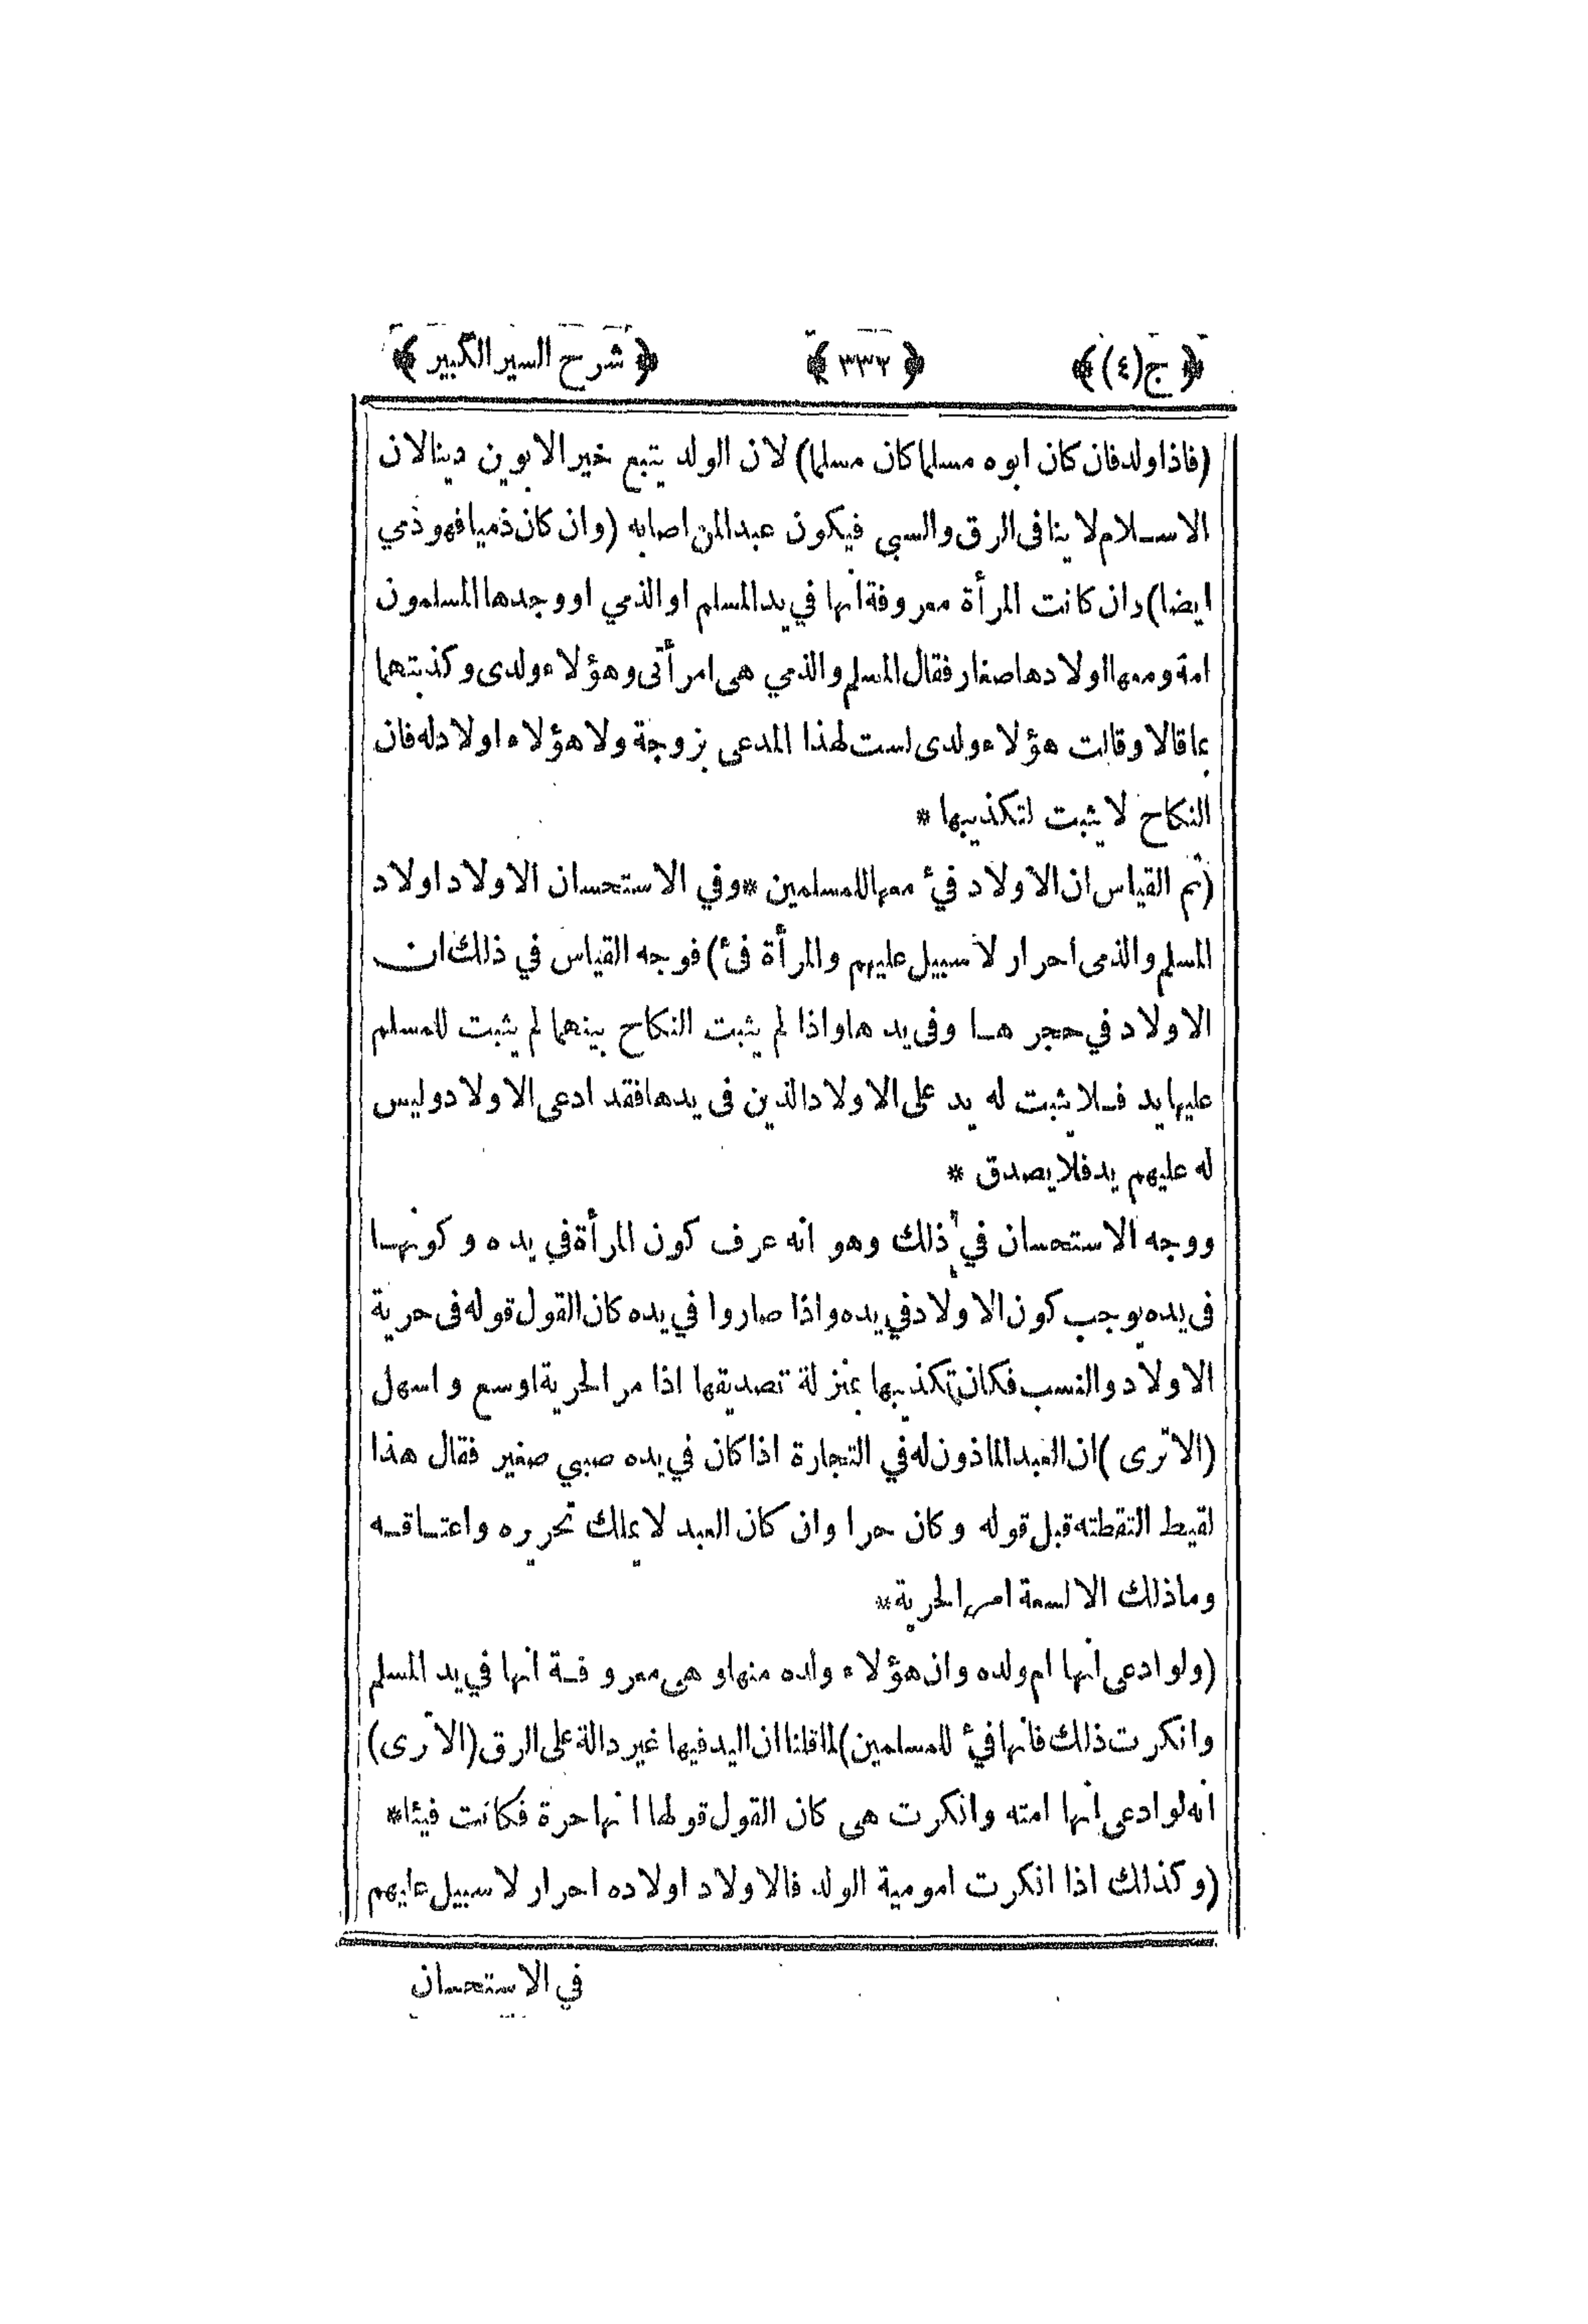 ﴿ ج (٤) ﴾ ﴿ ٣٣٢ ﴾ ﴿ شرح السير الكبير ﴾
(فاذا ولد فان كان ابوه مسلما كان مسلما) لان الولد يتبع خير الابوين دينا لان
الاسلام لا ينافى الرق والسبي فيكون عبدا لمن اصابه (وان كان ذميا فهو ذمي
ايضا) وان كانت المرأة معروفة انها في يد المسلم او الذمي او وجدها المسلمون
امة ومعها اولادها صغار فقال المسلم والذمي هى امرأتى وهؤلاء ولدى وكذبتهما
بما قالا وقالت هؤلاء ولدى لست لهذا المدعى بزوجة ولا هؤلاء اولاد له فان
النكاح لا يثبت لتكذيبها *
(ثم القياس ان الاولاد فيء معها للمسلمين * وفي الاستحسان الاولاد اولاد
المسلم والذمى احرار لا سبيل عليهم والمرأة فئ) فوجه القياس في ذلك ان
الاولاد في حجرها وفى يدها واذا لم يثبت النكاح بينهما لم يثبت للمسلم
عليها يد فلا يثبت له يد على الاولاد الذين فى يدها فقد ادعى الاولاد وليس
له عليهم يد فلا يصدق *
ووجه الاستحسان في ذلك وهو انه عرف كون المرأة في يده وكونها
فى يده يوجب كون الاولاد في يده واذا صاروا في يده كان القول قوله فى حرية
الاولاد والنسب فكان تكذيبها بمنزلة تصديقها اذا مر الحرية اوسع واسهل
(الا ترى) ان العبد الماذون له في التجارة اذا كان في يده صبي صغير فقال هذا
لقيط التقطته قبل قوله وكان حرا وان كان العبد لا يملك تحريره واعتاقه
وما ذلك الا لسعة امر الحرية *
(ولو ادعى انها ام ولده وان هؤلاء ولده منها وهى معروفة انها في يد المسلم
وانكرت ذلك فانها فيء للمسلمين) لما قلنا ان اليد فيها غير دالة على الرق (الا ترى)
انه لو ادعى انها امته وانكرت هى كان القول قولها انها حرة فكانت فيئا *
(وكذلك اذا انكرت امومية الولد فالاولاد اولاده احرار لا سبيل عليهم
في الاستحسان